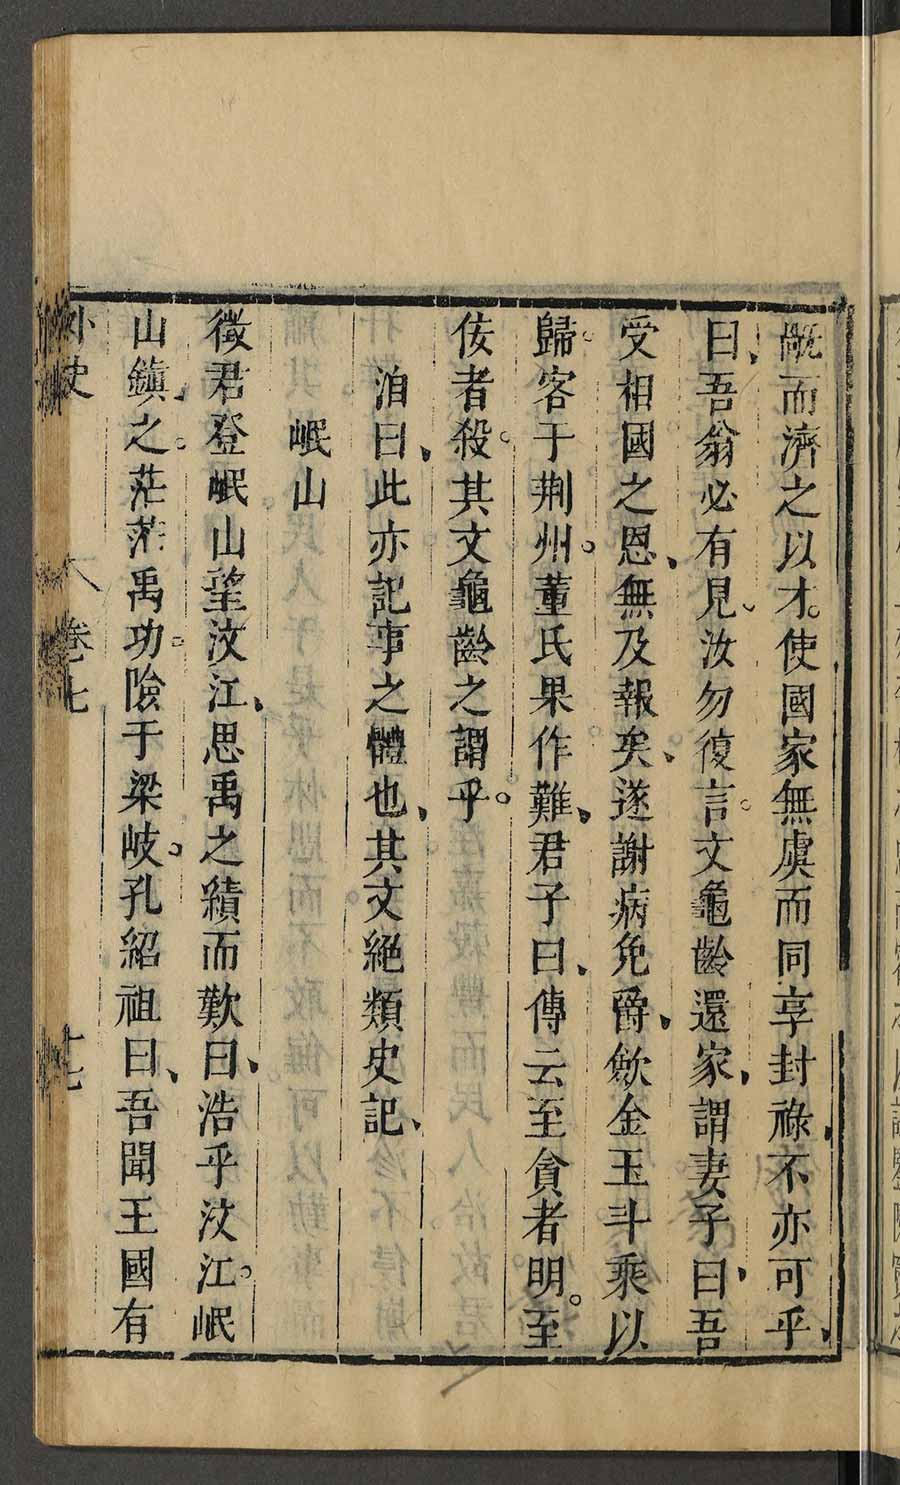 慨而濟之以才。使國家無虞而同享封祿、不亦可乎、
曰、吾翁必有見、汝勿復言。文龜齡還家、謂妻子曰、吾
受相國之恩、無及報矣、遂謝病免爵、斂金玉斗乘以
歸。客于荆州。董氏果作難、君子曰、傳云至貪者明。至
佞者殺。其文龜齡之謂乎。
洎曰、此亦記事之體也、其文絕類史記、
岷山
徵君登岷山望汶江、思禹之績而歎曰、浩乎汶江。岷
山鎮、之。茫茫禹功。險于梁岐。孔紹祖曰、吾聞王國有
外史
卷七
十七